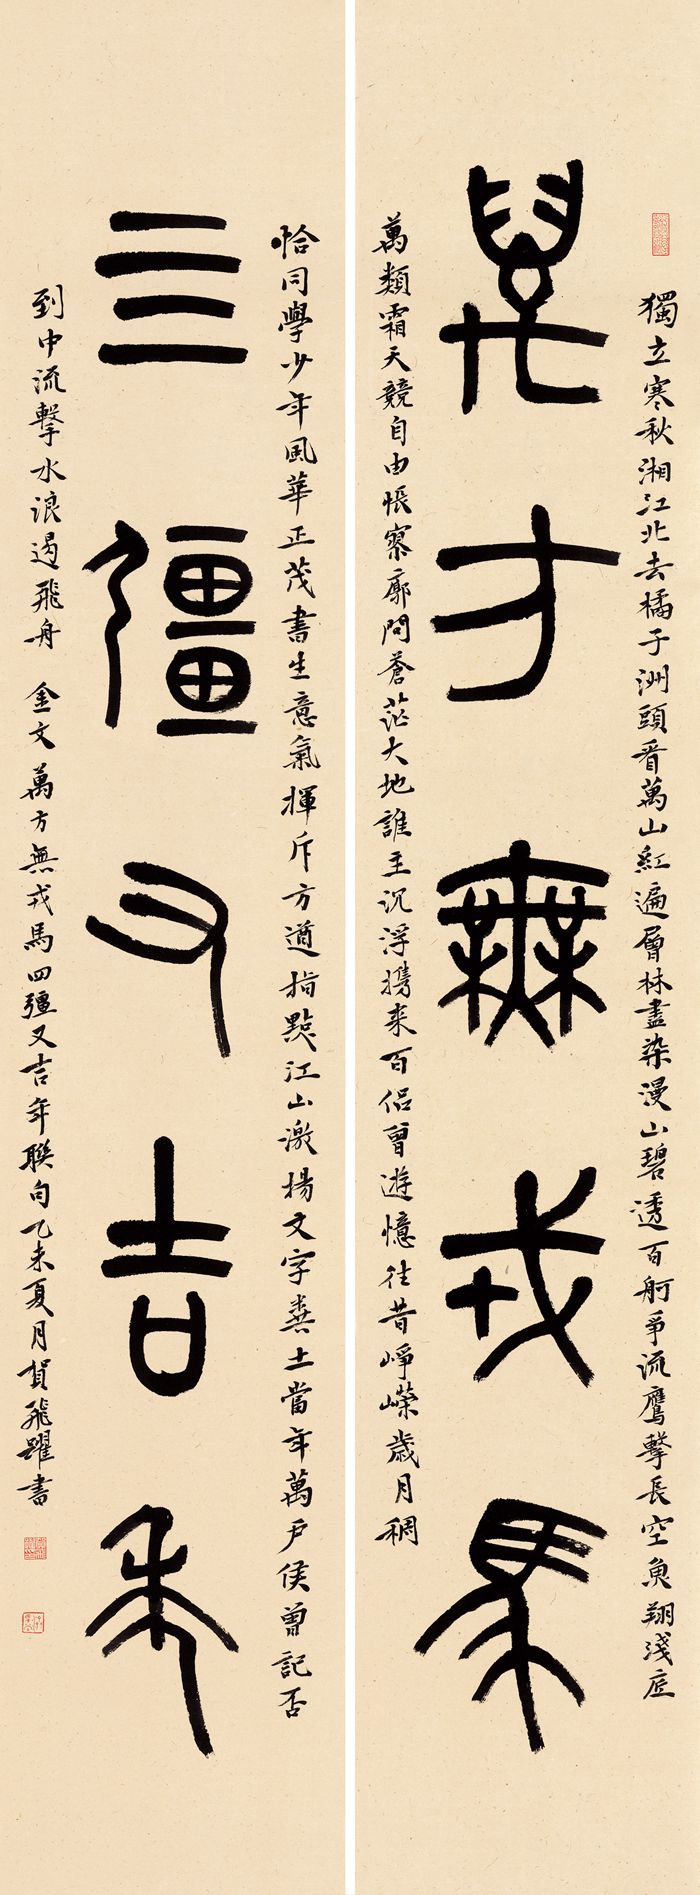 獨立寒秋湘江北去橘子洲頭看萬山紅遍層林盡染漫山碧透百舸爭流鷹擊長空魚翔淺底
萬方無戎馬
萬類霜天競自由悵寥廓問蒼茫大地誰主沉浮攜來百侶曾遊憶往昔崢嶸歲月稠
恰同學少年風華正茂書生意氣揮斥方遒指點江山激揚文字糞土當年萬戶侯曾記否
四彊又吉年
到中流擊水浪遏飛舟 金文萬方無戎馬四彊又吉年聯句乙未夏月賀飛躍書